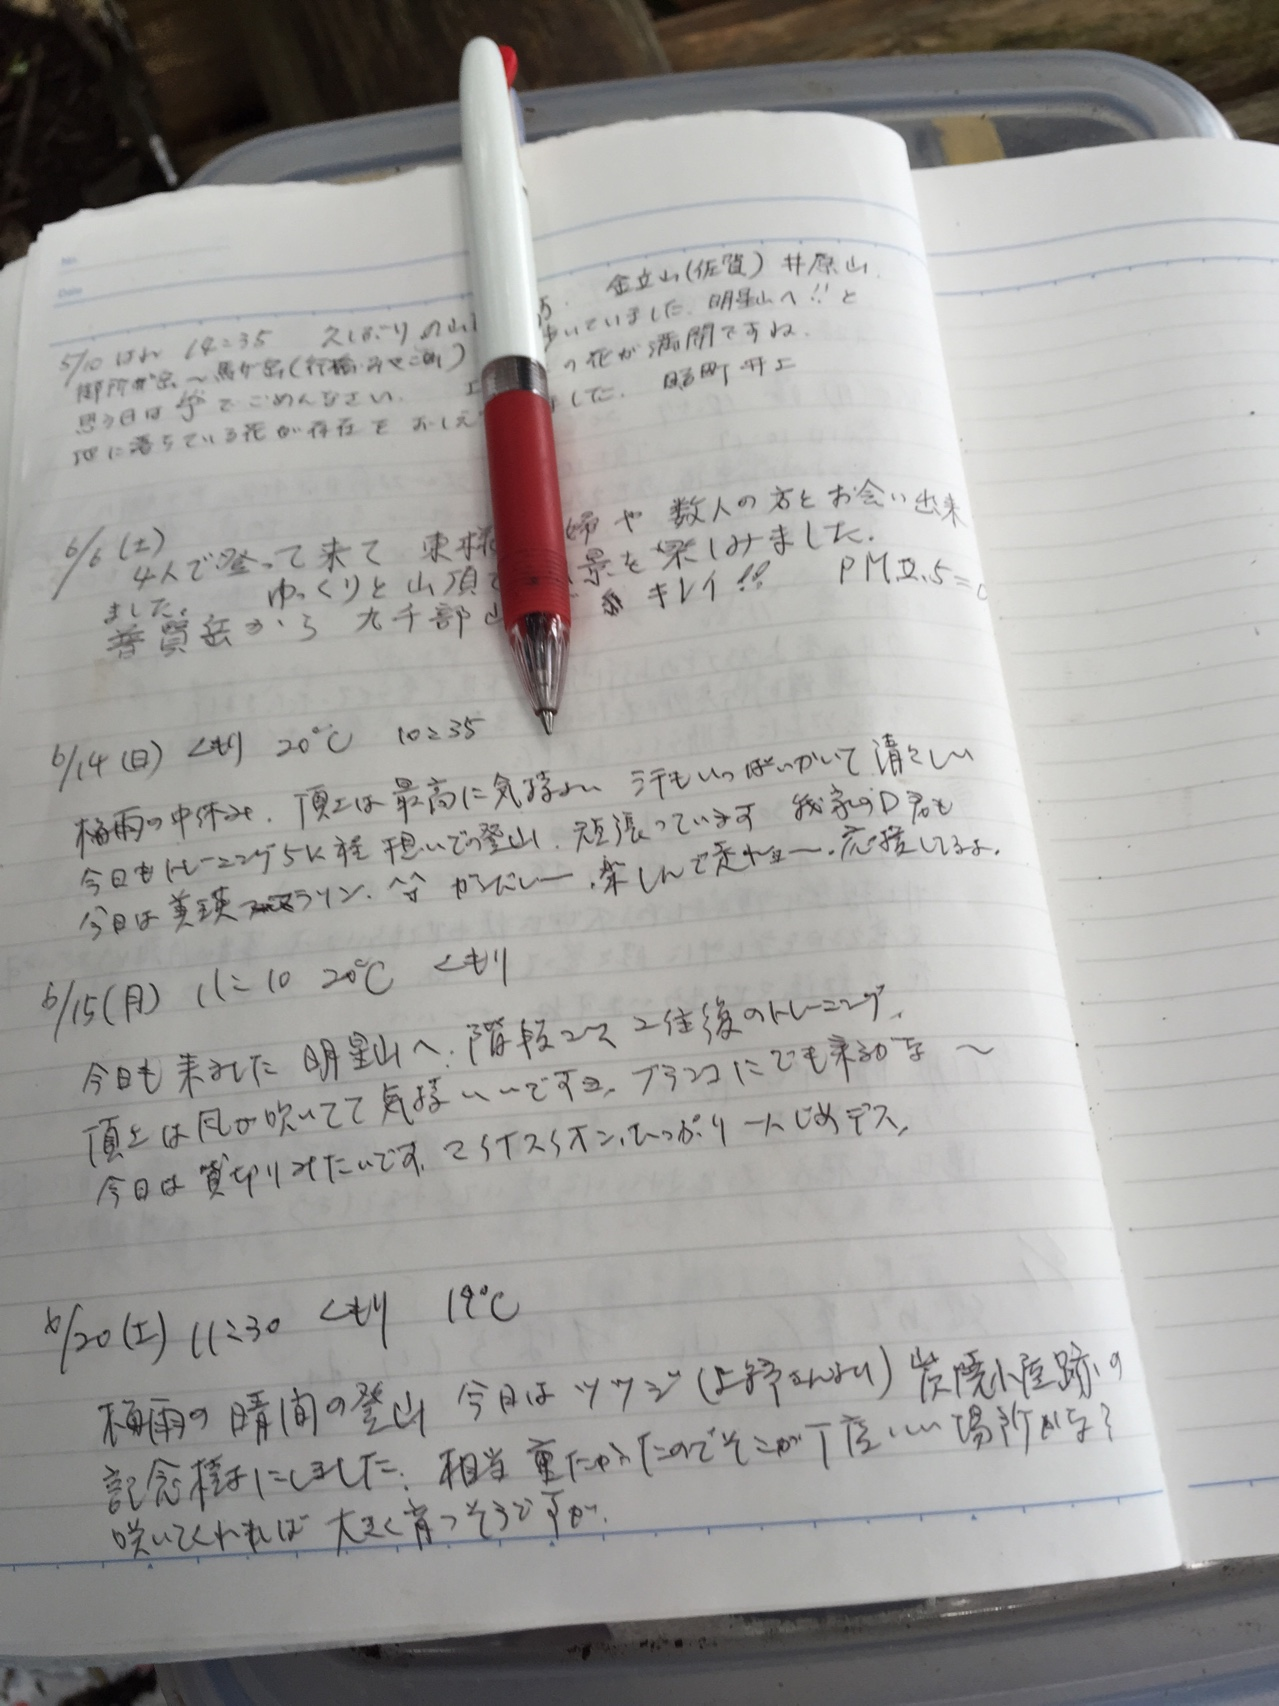 No.
Date
5/10 はれ 14:35 久しぶりの山 金立山(佐賀) 井原山.
御所ヶ岳〜馬ヶ岳(行橋・みやこ町) 歩いていました. 明星山へ!! と
思う日は でごめんなさい. の花が満開ですね.
地に落ちている花が存在を おしえ ました. 町 井上
6/6(土)
4人で登って来て 東様 姉や 数人の方とお会い出来
ました。 ゆっくりと山頂で 景を楽しみました.
普賢岳から 九千部山 キレイ!! PM2.5=0
6/14(日) くもり 20℃ 10:35
梅雨の中休み. 頂上は最高に気持よい 汗もいっぱいかいて清々しい
今日もトレーニング5K 想いでの登山. 頑張っています 我家のD君も
今日は美瑛マラソン. がんばれー. 楽しんで走れヨー. 応援してるよ.
6/15(月) 11:10 20℃ くもり
今日も来ました 明星山へ. 階段コース2往復のトレーニング.
頂上は風が吹いてて気持いいですヨ. ブランコにでも乗るかな〜
今日は貸切りみたいです. マイナスイオン.たっぷり一人じめデス.
6/20(土) 11:30 くもり 19℃
梅雨の晴間の登山 今日はツツジ( さんより) 炭焼小屋跡の
記念樹にしました. 相当重たかったのでそこが丁度いい場所かな?
咲いてくれれば 大きく育つそうですが.